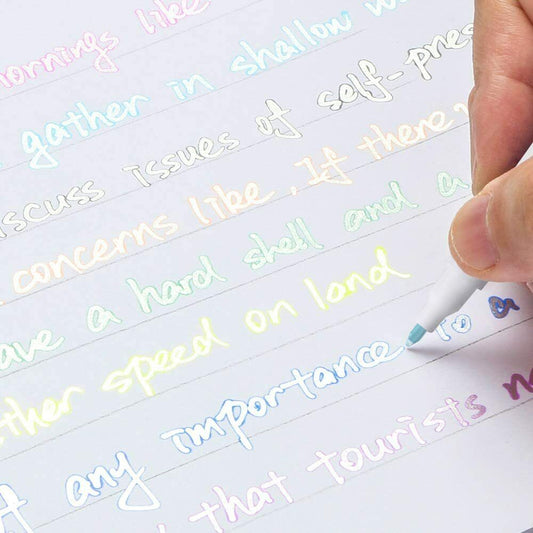 mornings like
gather in shallow
discuss issues of self-pres
concerns like, If there
have a hard shell and a
ther speed on land
t any importance to a
that tourists n